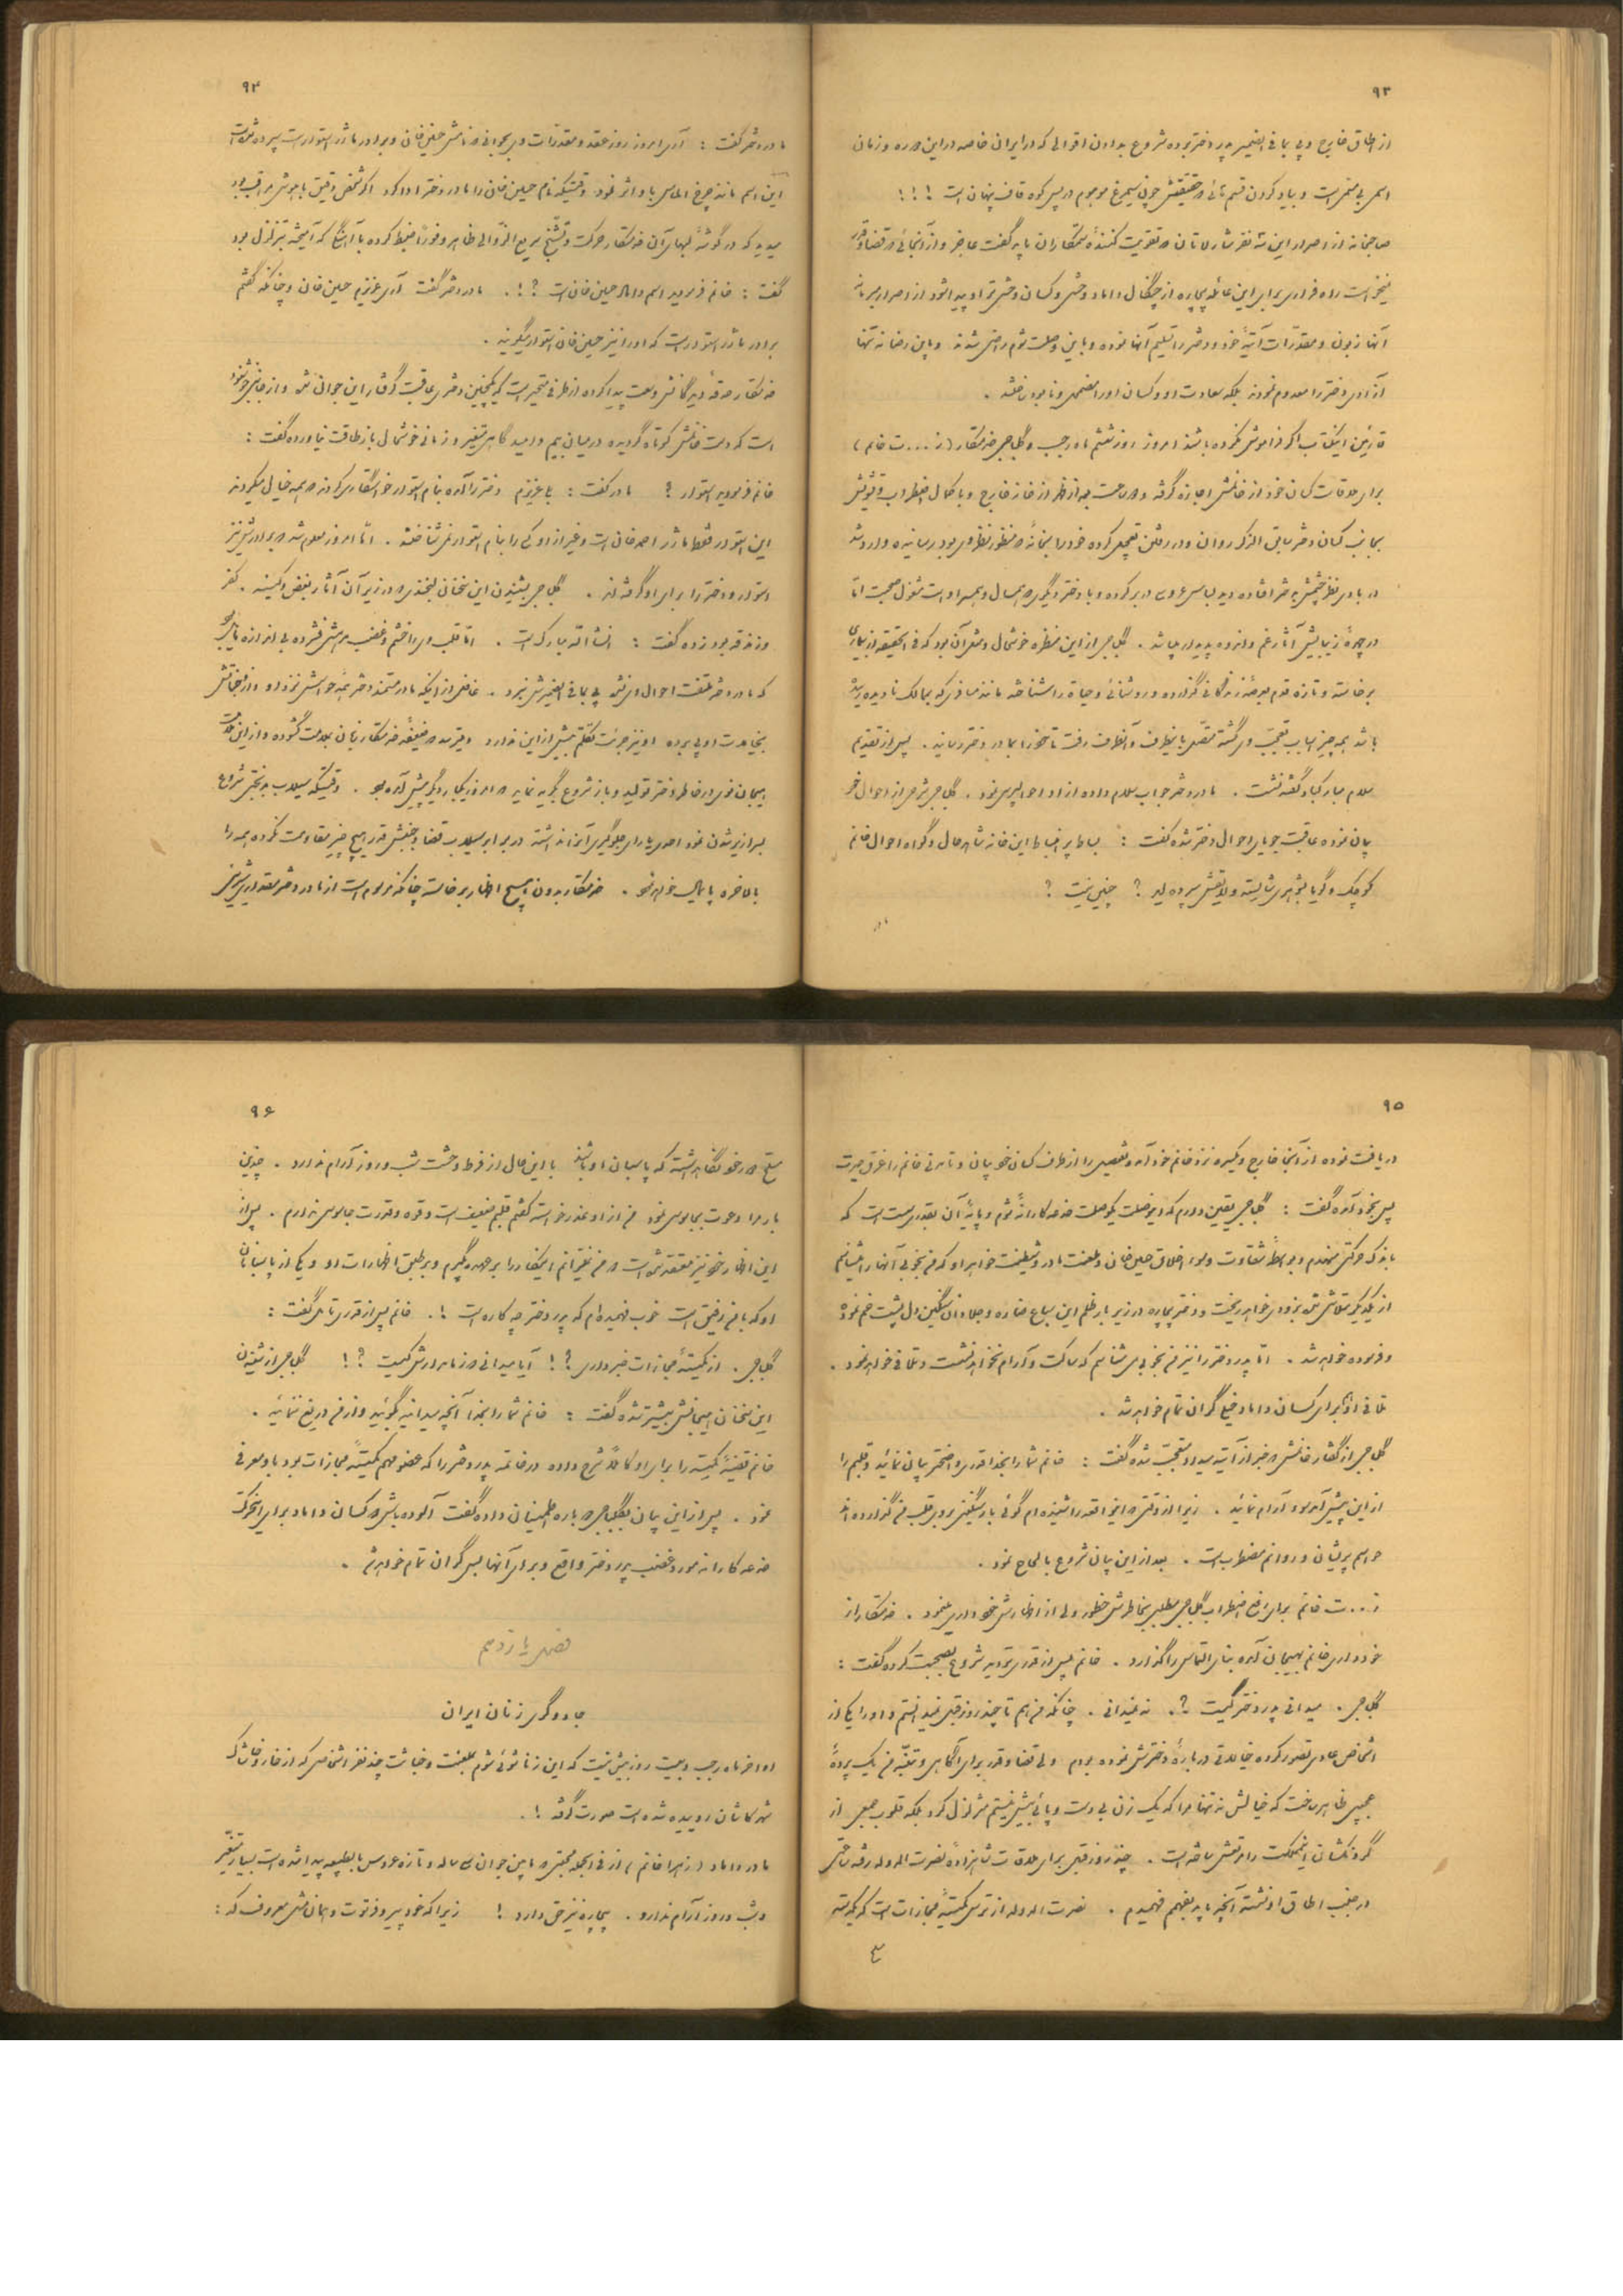 ۹۳
از اطاق خارج و پی بمافی الضمیر پدر دختر برده شروع بدادن اقوالی که در ایران خاصه در این دوره و زمان
اسمی بی مسمی است و بیاد کردن قسم هائی که حقیقتش چون سیمرغ موهوم در پس کوه قاف پنهان است !!!
از اصرار این سه نفر تقویت کنندهٔ ستمکاران باید گفت عاجز و از آنجائیکه قضا و قدر
نمیخواست راه فراری برای این عائله بیچاره از چنگال داماد وحشی و کسان وحشی تر او پیدا شود از اصرار
آنها زبون و مقدّرات آتیهٔ خود و دختر را تسلیم آنها نموده و باین وصلت شوم راضی شدند و باین رضا نه تنها
آزادی دختر را معدوم نمودند بلکه سعادت او و کسان او را مضمحل و نابود ساختند .
قارئین این کتاب اگر فراموش نکرده باشند امروز روز ششم ماه رجب و گل اجی خدمتکار (ز...ت خانم)
برای ملاقات کسان خود از خانمش اجازه گرفته و ساعت بعد از ظهر از خانه خارج و با کمال اضطراب و تشویش
بجانب کسان دختر سابق الذکر روان و در رفتن تعجیل کرده خود را بخانهٔ که منظور نظر وی بود رسانیده وارد شد
در بادی نظر چشمش به دختر افتاده دید لباس عروسی در بر کرده و با دختر دیگری که همسال و همسر اوست مشغول صحبت امّا
در چهرهٔ زیبایش آثار غم و اندوه پدیدار میباشد . گل اجی از این منظره خوشحال و مثل آن بود که فی الحقیقه از بیماری
برخاسته و تازه قدم بعرصهٔ زندگانی گزارده و روشنائی و حیاة را شناخته مانند مسافری که بممالک نادیده رسیده
باشد همه چیز اسباب تعجب وی گشته متصل باینطرف و آنطرف رفت تا خود را بمادر دختر رسانید . پس از تقدیم
سلام مبارکباد گفته نشست . مادر دختر جواب سلام داده از او احوالپرسی نمود . گل اجی شرحی از احوال خود
بیان نموده عاقبت جویای احوال دختر شده گفت : بساط پر انبساط این خانه شاهد حال و گواه احوال خانم
کوچک و گویا بشوهری شایسته و لایقش سپرده اید ? چنین نیست ?
مادر
۹۴
مادر دختر گفت : آری امروز روز عقد و مقدّرات وی بجوانی که نامش حسین خان و برادر ماژر استوار است سپرده شده است
این اسم مانند چرخ الماس باو اثر نمود وقتیکه نام حسین خان را مادر دختر ادا کرد اگر شخص دقیق باهوشی مراقب بود
میدید که در گوشهٔ لبهای آن خدمتکار حرکت و تشنّج سریع الزوالی ظاهر و فوراً ضبط کرده با آهنگی که آمیخته بتزلزل بود
گفت : خانم فرمودید اسم داماد حسین خان است ?!. مادر دختر گفت آری عزیزم حسین خان و چنانکه گفتم
برادر ماژر استوار است که او را نیز حسین خان استوار میگویند .
خدمتکار حدقهٔ دیدگانش وسعت پیدا کرده از طرفی متحیر است که یکچنین دختری عاقبت گرفتار این جوانی شد و از جانبی خوشنود
است که دست خانمش کوتاه گردیده در میان بیم و امید گاهی متغیر و زمانی خوشحال باز طاقت نیاورده گفت :
خانم فرمودید استوار ? مادر گفت : بلی عزیزم دختر را آمده بنام استوار خواستگاری کردند و همه خیال میکردند
این استوار فقط ماژر احمد خان است و غیر از او کسی را بنام استوار نمیشناختند . امّا امروز معلوم شد که برادرش نیز
استوار و دختر را برای او گرفته اند . گل اجی بشنیدن این سخنان لبخندی که در زیر آن آثار بغض و کینه ، کفر
و زندقه بود زده گفت : انشاالله مبارک است . امّا قلب وی را خشم و غضب سرشاری فشرده بی اندازه
که مادر دختر ملتفت احوال درونش و پی بمافی الضمیرش نبرد . غافل از اینکه مادر ستمدیده دختر همهٔ حواسش نزد او و از
بخیالات او پی برده او نیز جرئت تکلّم بیش از این ندارد و میترسد که ضعیفهٔ خدمتکار زبان بملامت گشوده و از این
هیجان خونی در خاطر دختر تولید و باز شروع بگریه نماید که امروز یکبار دیگر پیش آمده بود . وقتیکه سیلاب بدبختی شروع
بسرازیر شدن نمود احدی یارای جلوگیری آنرا نداشته در برابر سیلاب قضا و جنبش قدر هیچ چیز مقاومت نکرده همه را
بالاخره پایمال خواهد نمود . خدمتکار بدون هیچ اظهار برخاسته چنانکه مرسوم است از مادر دختر مقداری شیرینی
۹۵
دریافت نموده از آنجا خارج و یکسره نزد خانم خود آمد و تفصیل را از طرف کسان خود بیان و تا مدتی خانم را غرق حیرت
پس بخود آمده گفت : گل اجی یقین دارم که این وصلت یکوصلت خدعه کارانهٔ شوم و پایهٔ آن بقدری سست است که
باندک حرکتی منهدم و بواسطهٔ شقاوت و سوء اخلاق حسین خان و ملعنت مادر و شیطنت خواهر او که من بخوبی آنها را میشناسم
از یکدیگر متلاشی شده بزودی خواهد ریخت و دختر بیچاره در زیر بار ظلم این سباع ضاره و جلادان سنگین دل پشت خم نموده
و فرسوده خواهد شد . امّا پدر دختر را نیز من بخوبی میشناسم که ساکت و آرام نخواهد نشست و تلافی خواهد نمود .
تلافی او برای کسان داماد خیلی گران تمام خواهد شد .
گل اجی از گفتار خانمش که خبر از آتیه میداد متعجب شده گفت : خانم شما را بخدا قدری واضحتر بیان نمائید و قلبم را
از این پیش آمد سوء آرام نمائید . زیرا از وقتی که این واقعه را شنیده ام گوئی بار سنگینی بروی قلب من گزارده اند
حواسم پریشان و روانم مضطرب است . بعد از این بیان شروع بالحاح نمود .
ز...ت خانم برای رفع اضطراب گل اجی مطلبی بخاطرش خطور ولی از اظهارش خود داری مینمود . خدمتکار از
خودداری خانم بهیجان آمده بنای التماس را گذارد . خانم پس از قدری تردید شروع بصحبت کرده گفت :
گل اجی . میدانی پدر دختر کیست ?. نه نمیدانی . چنانکه من هم تا چند روز قبل نمیدانستم و او را یکی از
اشخاص عادی تصور کرده خیالاتی در بارهٔ دخترش نموده بودم ولی قضا و قدر برای آگاهی و تنبّه من یک پردهٔ
عجیبی ظاهر ساخت که خیالش نه تنها مرا که یک زن بی دست و پائی بیش نیستم متزلزل کرد بلکه قلوب جمعی از
گردنکشان این مملکت را مرتعش ساخته است . چند روز قبل برای ملاقات شاهزاده نصرت الدوله رفته ساعتی
در جنب اطاق او نشسته آنچه باید بفهمم فهمیدم . نصرت الدوله از ترس کمیتهٔ مجازات است که یکدسته
۹۶
مسلح در خود نگاهداشته که پاسبان او باشند با این حال از فرط وحشت شب و روز آرام ندارد . چندین
بار مرا دعوت بجاسوسی نمود من از او عذر خواسته گفتم قلبم ضعیف است و قوه و قدرت جاسوسی ندارم . پس از
این اظهار خود نیز معتقد شده است که من نمیتوانم اینکار را بر عهده بگیرم و بر طبق اظهارات او و یکی از پاسبانان
او که با من رفیق است خوب فهمیده ام که پدر دختر چه کاره است !. خانم پس از قدری تأمل گفت :
گل اجی . از کمیتهٔ مجازات خبر داری ?! آیا میدانی که زمامدارش کیست ?! گل اجی از شنیدن
این سخنان هیجانش بیشتر شده گفت : خانم شما را بخدا آنچه میدانید بگوئید و از من دریغ ننمائید .
خانم قضیهٔ کمیته را برای او کاملاً شرح داده در خاتمه پدر دختر را که عضو مهم کمیتهٔ مجازات بود باو معرفی
نمود . پس از این بیان بگل اجی دوباره اطمینان داده گفت آسوده باش که کسان داماد برای این حرکت
خدعه کارانه مورد غضب پدر دختر واقع و برای آنها بسی گران تمام خواهد شد .
فصل یازدهم
جادوگری زنان ایران
اواخر ماه رجب و بیست روز بیش نیست که این زناشوئی شوم بملعنت و خباثت چند نفر اشخاصی که از خار و خاشاک
شهر کاشان روییده شده است صورت گرفته !.
مادر داماد (زهرا خانم) از فی الجمله محبتی که مابین جوان سی ساله و تازه عروس بالطبیعه پیدا شده است بسیار متغیّر
و شب و روز آرام ندارد . بیچاره نیز حق دارد ! زیرا که خود پیر و فرتوت و بهمان مثل معروف که :